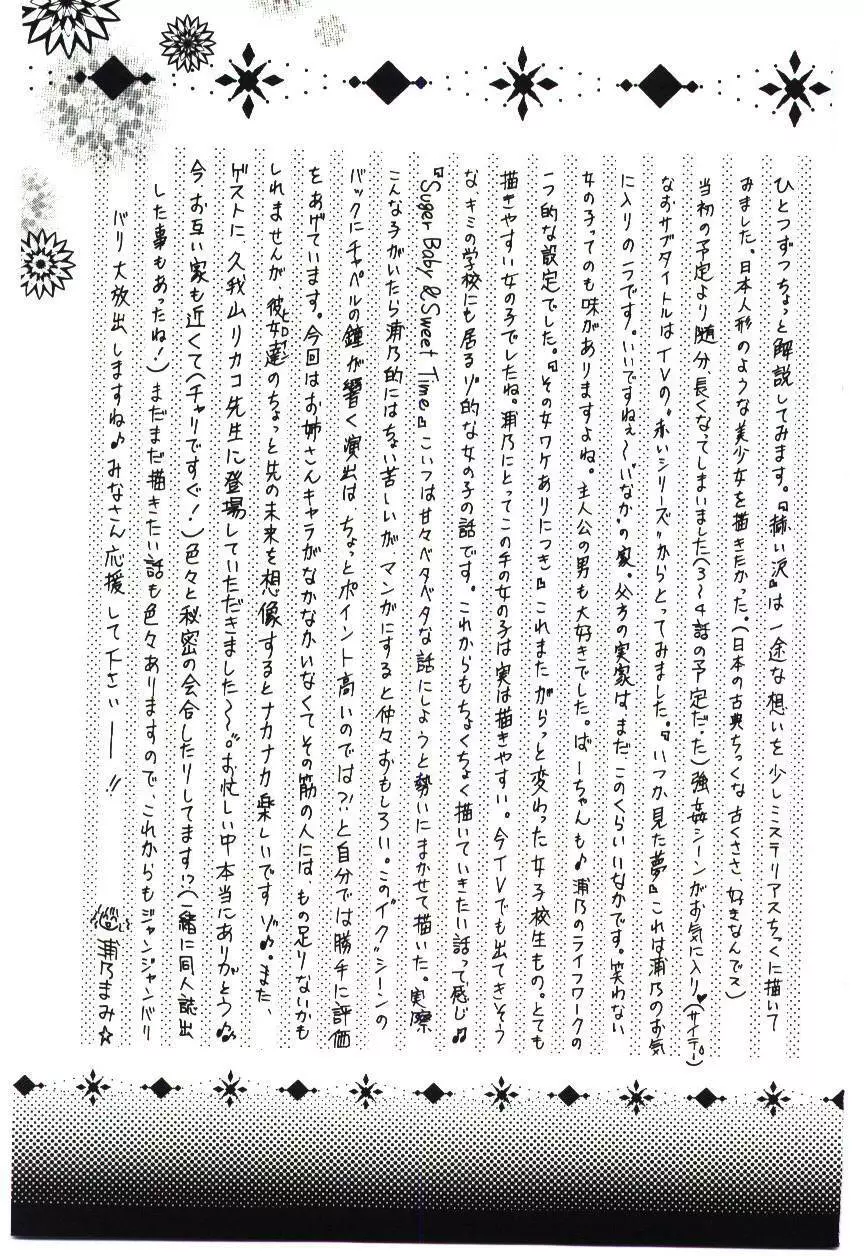 ひとつずつちょっと解説してみます。『赫い沢』は一途な想いを少しミステリアスちっくに描いて
みました。日本人形のような美少女を描きたかった。(日本の古典ちっくな古くささ、好きなんでス)
当初の予定より随分、長くなってしまいました(3〜4話の予定だった)強姦シーンがお気に入り♥(サイテー。)
なおサブタイトルはTVの“赤いシリーズ”からとってみました。『いつか見た夢』これは浦乃のお気
に入りの一つです。いいですねぇ〜“いなか”の家。父方の実家は、まだこのくらいいなかです。笑わない
女の子ってのも味がありますよね。主人公の男も大好きでした。ばーちゃんも♪浦乃のライフワークの
一つ的な設定でした。『その女ワケありにつき』これまたがらっと変わった女子校生もの。とても
描きやすい女の子でしたね。浦乃にとってこの手の女の子は実は描きやすい。今TVでも出てきそう
な、キミの学校にも居るゾ的な女の子の話です。これからもちょくちょく描いていきたい話って感じ♪
『Suger Baby & Sweet Time』こいつは甘々ベタベタな話にしようと勢いにまかせて描いた。実際
こんな子がいたら浦乃的にはちょい苦しいがマンガにすると仲々おもしろい。この“イク”シーンの
バックにチャペルの鐘が響く演出は、ちょっとポイント高いのでは?!と自分では勝手に評価
をあげています。今回はお姉さんキャラがなかなかいなくてその筋の人には、もの足りないかも
しれませんが、彼女達のちょっと先の未来を想像するとナカナカ楽しいですゾ♪。また、
ヒロイン
ゲストに久我山リカコ先生に登場していただきました〜〜。お忙しい中本当にありがとう♪
今お互い家も近くて(チャリですぐ!)色々と秘密の会合したりしてます!?(一緒に同人誌出
した事もあったね!)まだまだ描きたい話も色々ありますので、これからもジャンジャンバリ
バリ大放出しますね♪みなさん応援して下さいーー!!
浦乃まみ☆